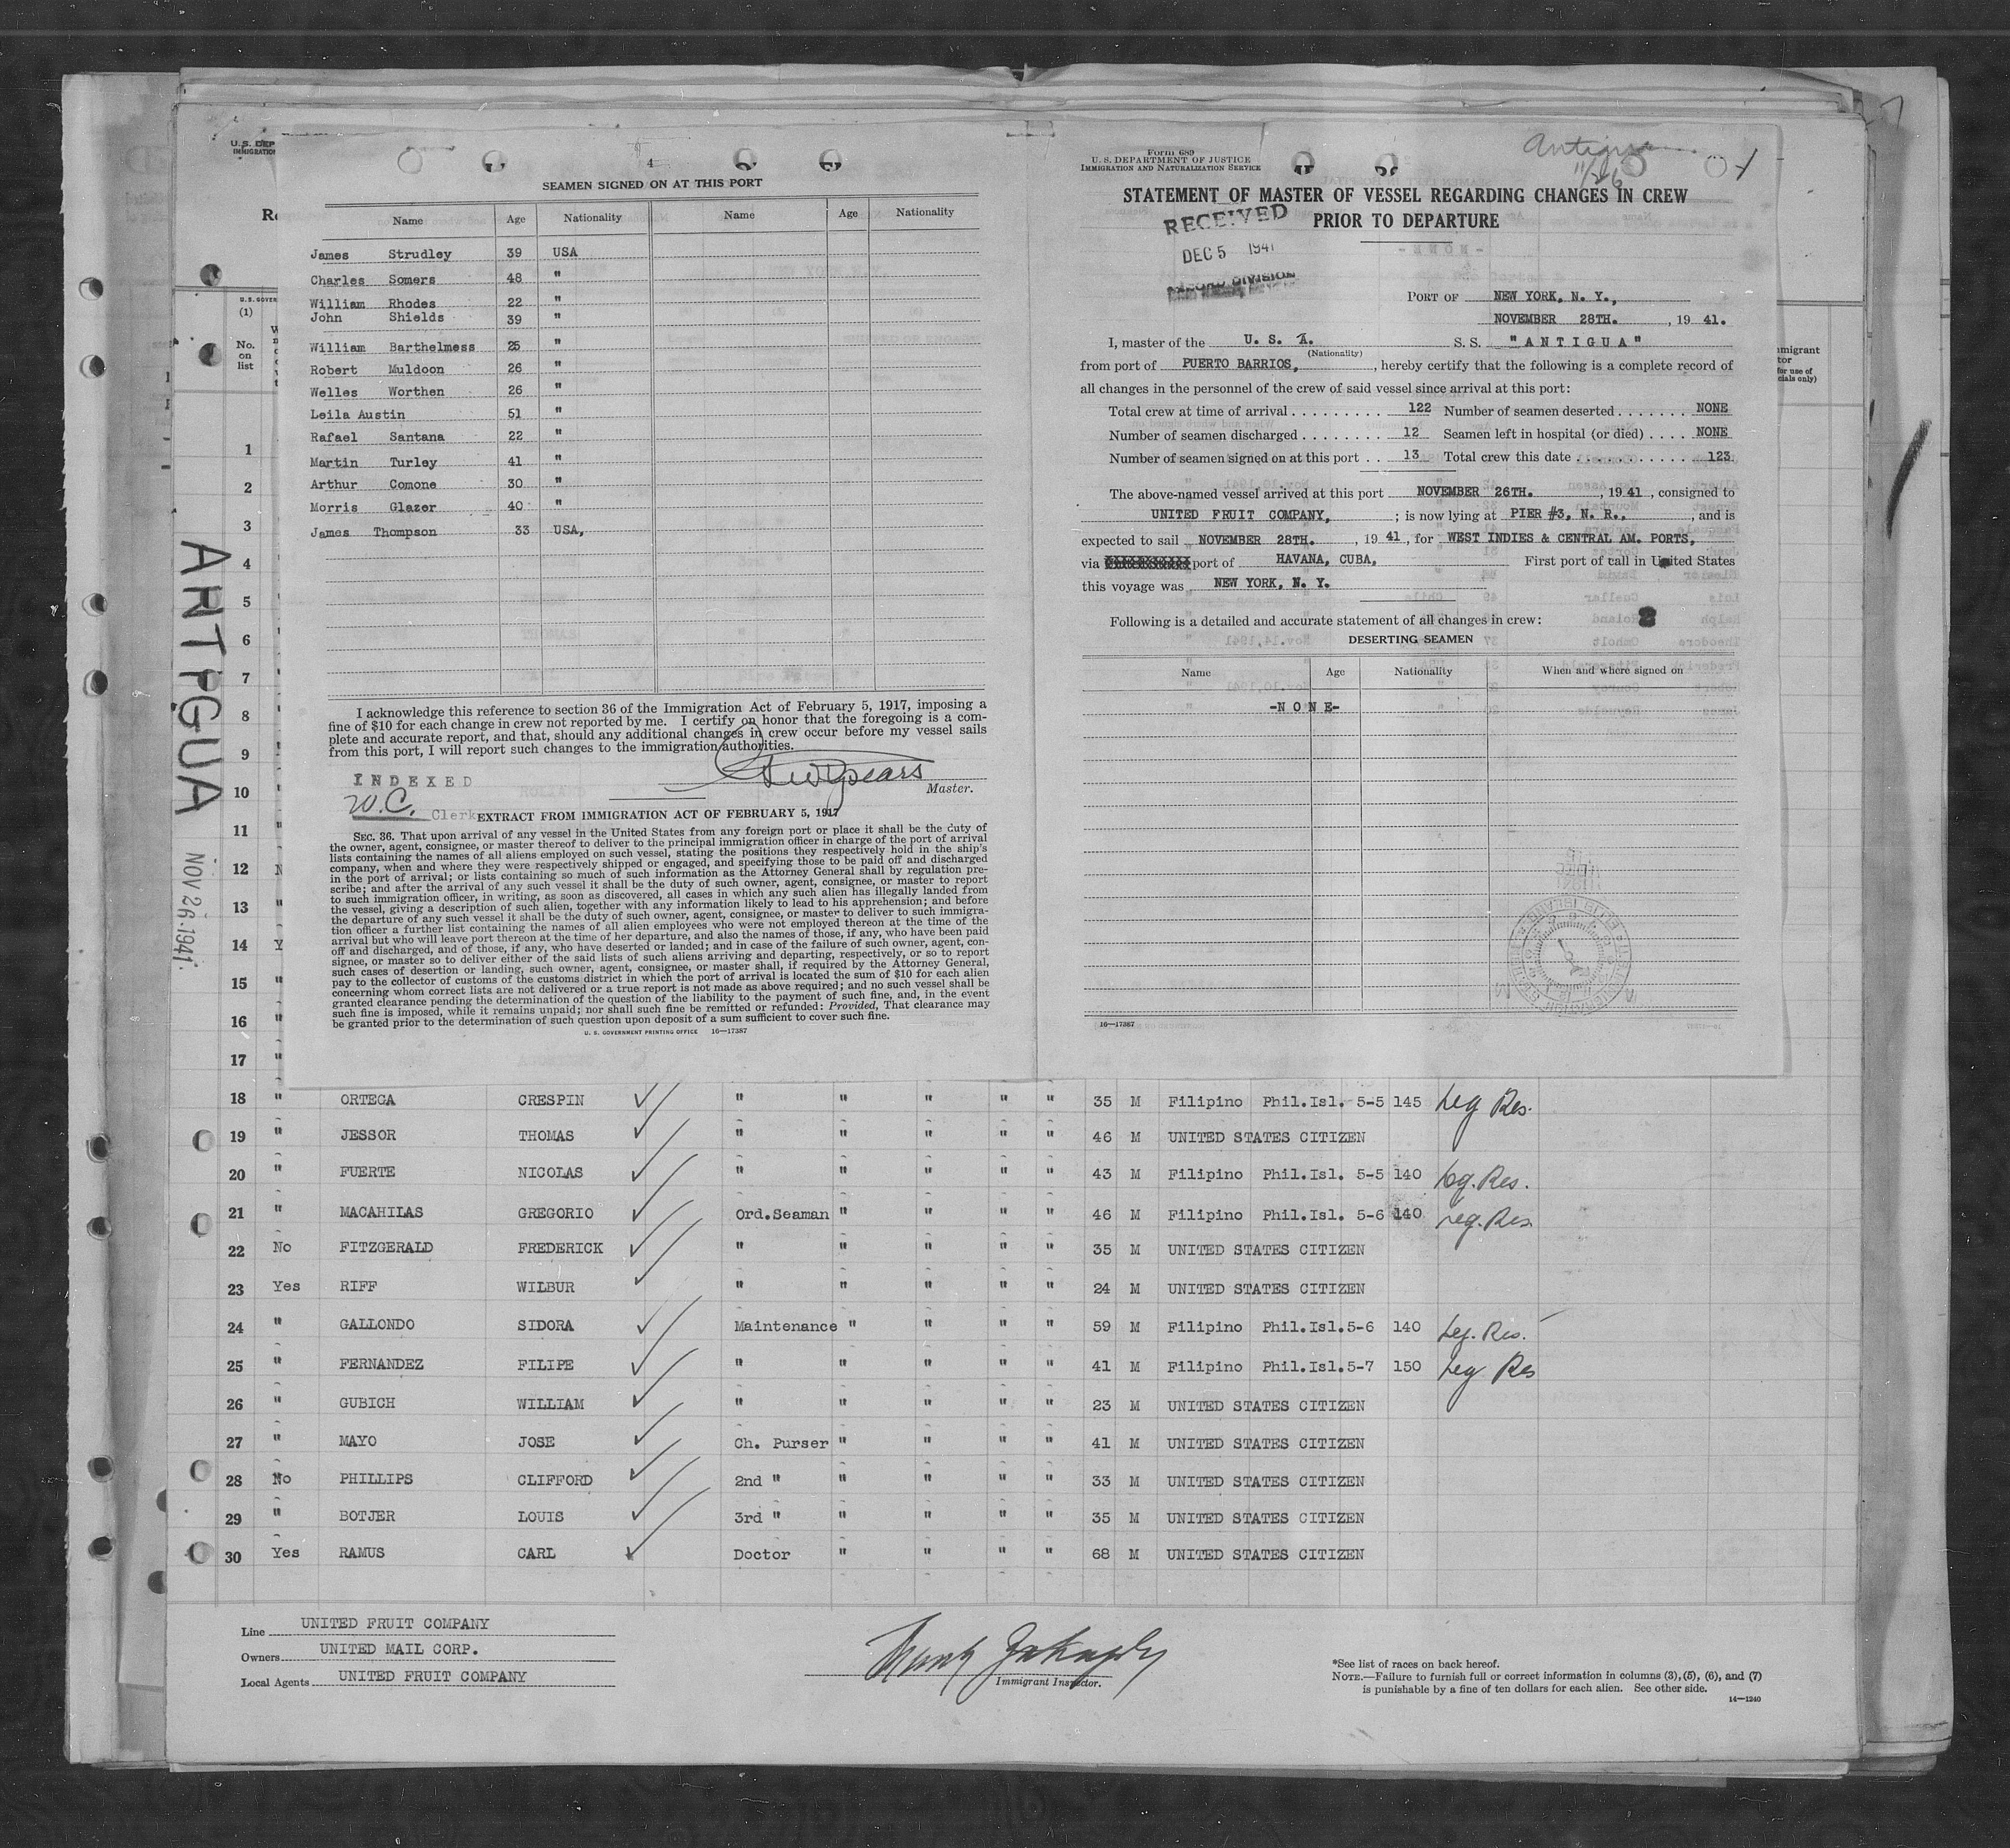 4
SEAMEN SIGNED ON AT THIS PORT
Name Age Nationality Name Age Nationality
James Strudley 39 USA
Charles Somers 48 "
William Rhodes 22 "
John Shields 39 "
William Barthelmess 25 "
Robert Muldoon 26 "
Welles Worthen 26 "
Leila Austin 51 "
Rafael Santana 22 "
Martin Turley 41 "
Arthur Comone 30 "
Morris Glazer 40 "
James Thompson 33 USA,
I acknowledge this reference to section 36 of the Immigration Act of February 5, 1917, imposing a
fine of $10 for each change in crew not reported by me. I certify on honor that the foregoing is a com-
plete and accurate report, and that, should any additional changes in crew occur before my vessel sails
from this port, I will report such changes to the immigration authorities.
INDEXED
Master.
W.C. Clerk
EXTRACT FROM IMMIGRATION ACT OF FEBRUARY 5, 1917
SEC. 36. That upon arrival of any vessel in the United States from any foreign port or place it shall be the duty of
the owner, agent, consignee, or master thereof to deliver to the principal immigration officer in charge of the port of arrival
lists containing the names of all aliens employed on such vessel, stating the positions they respectively hold in the ship's
company, when and where they were respectively shipped or engaged, and specifying those to be paid off and discharged
in the port of arrival; or lists containing so much of such information as the Attorney General shall by regulation pre-
scribe; and after the arrival of any such vessel it shall be the duty of such owner, agent, consignee, or master to report
to such immigration officer, in writing, as soon as discovered, all cases in which any such alien has illegally landed from
the vessel, giving a description of such alien, together with any information likely to lead to his apprehension; and before
the departure of any such vessel it shall be the duty of such owner, agent, consignee, or master to deliver to such immigra-
tion officer a further list containing the names of all alien employees who were not employed thereon at the time of the
arrival but who will leave port thereon at the time of her departure, and also the names of those, if any, who have been paid
off and discharged, and of those, if any, who have deserted or landed; and in case of the failure of such owner, agent, con-
signee, or master so to deliver either of the said lists of such aliens arriving and departing, respectively, or so to report
such cases of desertion or landing, such owner, agent, consignee, or master shall, if required by the Attorney General,
pay to the collector of customs of the customs district in which the port of arrival is located the sum of $10 for each alien
concerning whom correct lists are not delivered or a true report is not made as above required; and no such vessel shall be
granted clearance pending the determination of the question of the liability to the payment of such fine, and, in the event
such fine is imposed, while it remains unpaid; nor shall such fine be remitted or refunded: Provided, That clearance may
be granted prior to the determination of such question upon deposit of a sum sufficient to cover such fine.
U. S. GOVERNMENT PRINTING OFFICE 16—17387
Form 689
U. S. DEPARTMENT OF JUSTICE
IMMIGRATION AND NATURALIZATION SERVICE
Antigua
11/26
STATEMENT OF MASTER OF VESSEL REGARDING CHANGES IN CREW
PRIOR TO DEPARTURE
RECEIVED
DEC 5 1941
RECORD DIVISION
PORT OF NEW YORK, N. Y.,
NOVEMBER 28TH. , 19 41.
I, master of the U. S. A. S. S. "ANTIGUA"
(Nationality)
from port of PUERTO BARRIOS, , hereby certify that the following is a complete record of
all changes in the personnel of the crew of said vessel since arrival at this port:
Total crew at time of arrival . . . . . . . . . 122 Number of seamen deserted . . . . . . . NONE
Number of seamen discharged . . . . . . . . 12 Seamen left in hospital (or died) . . . . NONE
Number of seamen signed on at this port . . 13 Total crew this date . . . . . . . . . . . 123
The above-named vessel arrived at this port NOVEMBER 26TH. , 19 41 , consigned to
UNITED FRUIT COMPANY, ; is now lying at PIER #3, N. R., , and is
expected to sail NOVEMBER 28TH. , 19 41 , for WEST INDIES & CENTRAL AM. PORTS,
via port of HAVANA, CUBA, First port of call in United States
this voyage was NEW YORK, N. Y.
Following is a detailed and accurate statement of all changes in crew:
DESERTING SEAMEN
Name Age Nationality When and where signed on
-NONE-
16—17387
U.S. DEP
IMMIGRATION
U.S. GOVER
(1)
No. on list
ANTIGUA
NOV 26, 1941.
1
2
3
4
5
6
7
8
9
10
11
12
13
14
15
16
17
18 " ORTEGA CRESPIN " " " " " 35 M Filipino Phil.Isl. 5-5 145 Leg Res.
19 " JESSOR THOMAS " " " " " 46 M UNITED STATES CITIZEN
20 " FUERTE NICOLAS " " " " " 43 M Filipino Phil.Isl. 5-5 140 Leg. Res.
21 " MACAHILAS GREGORIO Ord.Seaman " " " " 46 M Filipino Phil.Isl. 5-6 140 Leg. Res
22 No FITZGERALD FREDERICK " " " " " 35 M UNITED STATES CITIZEN
23 Yes RIFF WILBUR " " " " " 24 M UNITED STATES CITIZEN
24 " GALLONDO SIDORA Maintenance " " " " 59 M Filipino Phil.Isl. 5-6 140 Leg. Res.
25 " FERNANDEZ FILIPE " " " " " 41 M Filipino Phil.Isl. 5-7 150 Leg Res
26 " GUBICH WILLIAM " " " " " 23 M UNITED STATES CITIZEN
27 " MAYO JOSE Ch. Purser " " " " 41 M UNITED STATES CITIZEN
28 No PHILLIPS CLIFFORD 2nd " " " " " 33 M UNITED STATES CITIZEN
29 " BOTJER LOUIS 3rd " " " " " 35 M UNITED STATES CITIZEN
30 Yes RAMUS CARL Doctor " " " " 68 M UNITED STATES CITIZEN
Line UNITED FRUIT COMPANY
Owners UNITED MAIL CORP.
Local Agents UNITED FRUIT COMPANY
Immigrant Inspector.
*See list of races on back hereof.
NOTE.—Failure to furnish full or correct information in columns (3), (5), (6), and (7)
is punishable by a fine of ten dollars for each alien. See other side.
14—1240